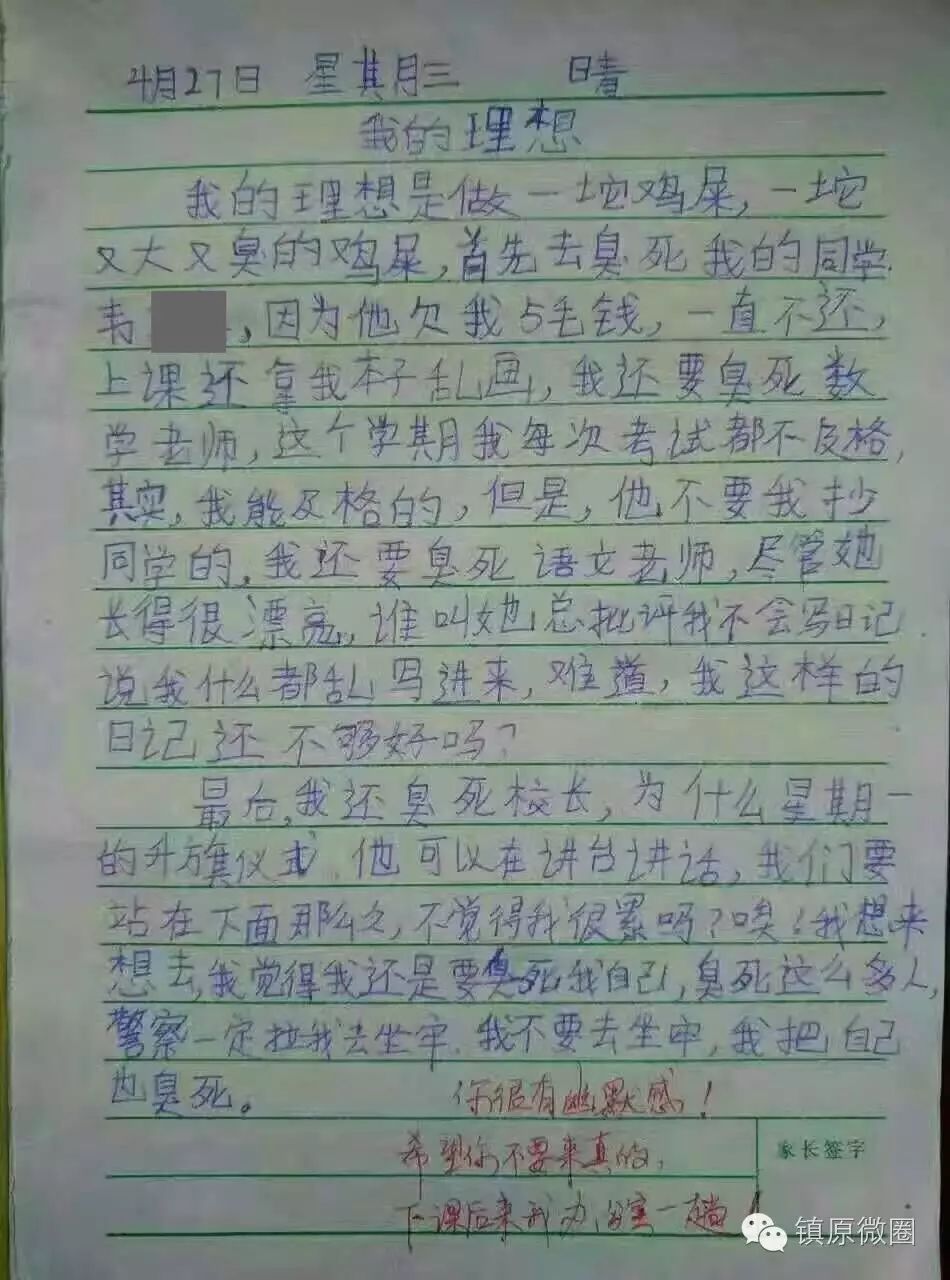 4月27日 星其月三 晴
我的理想
我的理想是做一坨鸡屎,一坨
又大又臭的鸡屎,首先去臭死我的同学
韦,因为他欠我5毛钱,一直不还,
上课还拿我本子乱画,我还要臭死数
学老师,这个学期我每次考试都不及格,
其实,我能及格的,但是,他不要我抄
同学的,我还要臭死语文老师,尽管她
长得很漂亮,谁叫她总批评我不会写日记
说我什么都乱写进来,难道,我这样的
日记还不够好吗?
最后,我还臭死校长,为什么星期一
的升旗仪式,他可以在讲台讲话,我们要
站在下面那么久,不觉得我很累吗?唉!我想来
想去,我觉得我还是要臭死我自己,臭死这么多人,
警察一定拉我去坐牢.我不要去坐牢,我把自己
也臭死。
你很有幽默感!
希望你不要来真的,
家长签字
下课后来我办公室一趟!
镇原微圈